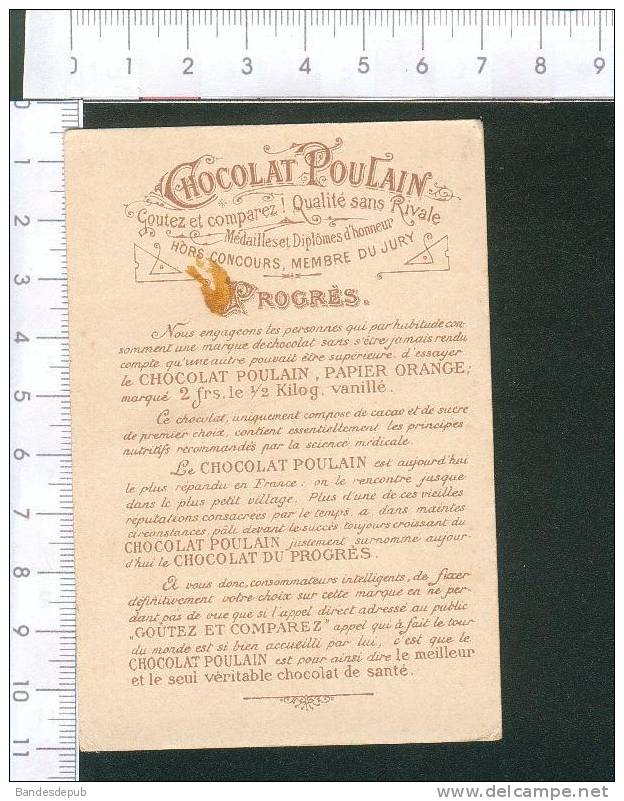 0 1 2 3 4 5 6 7 8 9
1
2
3
4
5
6
7
8
9
10
11
CHOCOLAT POULAIN
Goutez et comparez! Qualité sans Rivale
Médailles et Diplômes d'honneur
HORS CONCOURS, MEMBRE DU JURY
PROGRÈS.
Nous engageons les personnes qui par habitude con-
somment une marque de chocolat sans s'être jamais rendu
compte qu'une autre pouvait être supérieure, d'essayer
le CHOCOLAT POULAIN, PAPIER ORANGE;
marqué 2 frs. le 1/2 Kilog. vanillé.
Ce chocolat, uniquement composé de cacao et de sucre
de premier choix, contient essentiellement les principes
nutritifs recommandés par la science médicale.
Le CHOCOLAT POULAIN est aujourd'hui
le plus répandu en France: on le rencontre jusque
dans le plus petit village. Plus d'une de ces vieilles
réputations consacrées par le temps, a dans maintes
circonstances, pâli devant le succès toujours croissant du
CHOCOLAT POULAIN justement surnommé aujour-
d'hui le CHOCOLAT DU PROGRÈS.
A vous donc, consommateurs intelligents, de fixer
définitivement votre choix sur cette marque en ne per-
dant pas de vue que si l'appel direct adressé au public
„GOUTEZ ET COMPAREZ" appel qui à fait le tour
du monde est si bien accueilli par lui, c'est que le
CHOCOLAT POULAIN est pour ainsi dire le meilleur
et le seul véritable chocolat de santé.
Bandesdepub
www.delcampe.net